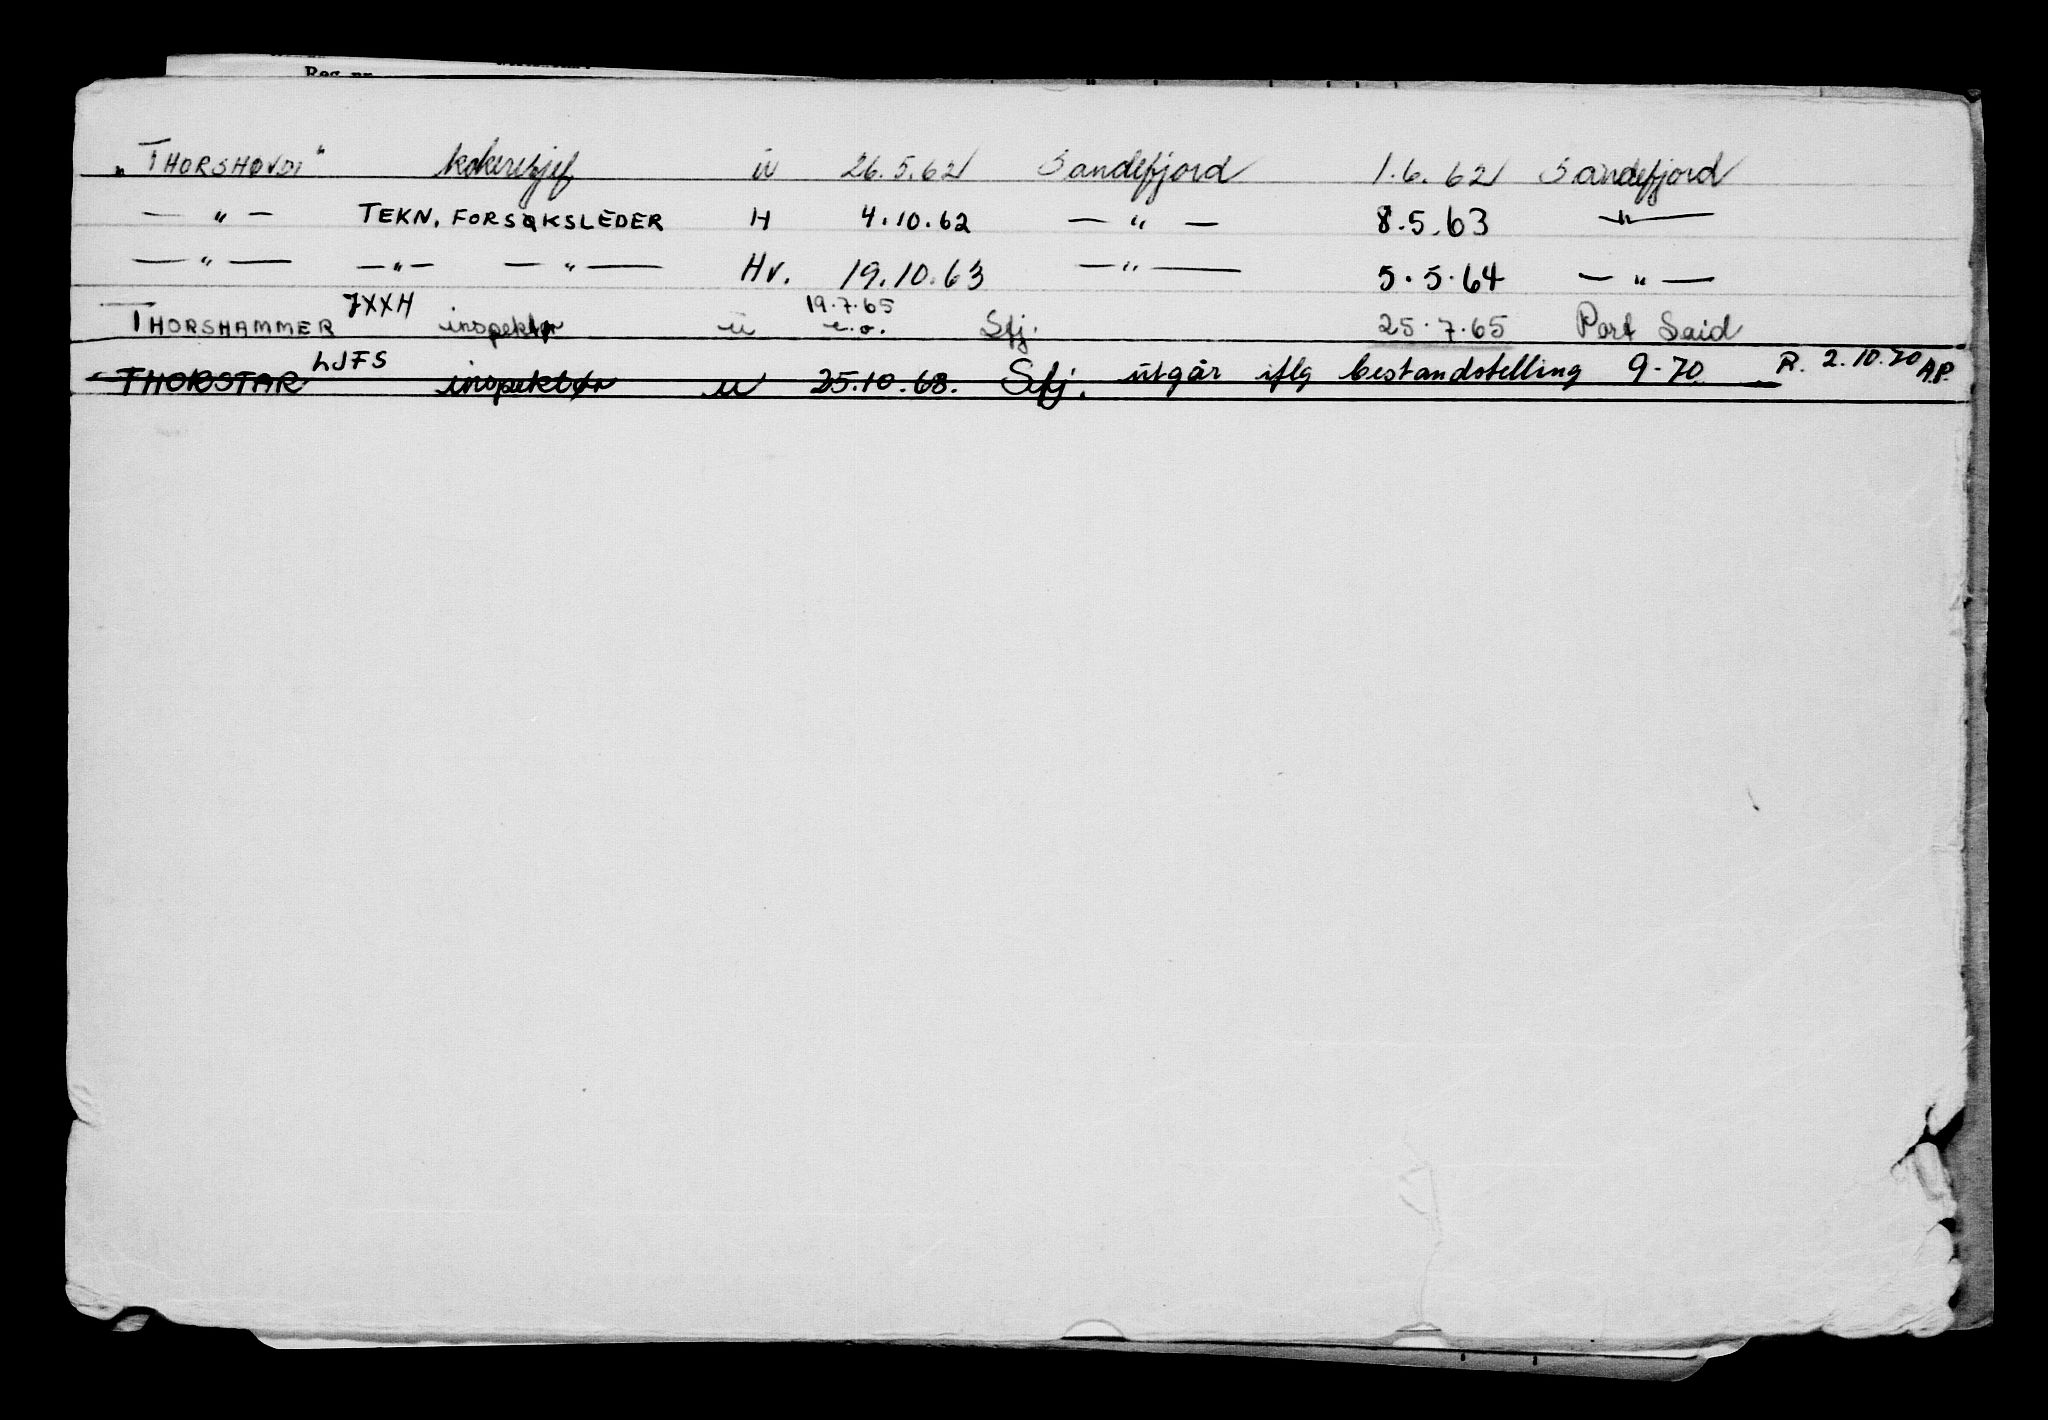 Reg. nr.
„THORSHØVDI" kokerisjef u 26.5.62 Sandefjord 1.6.62 Sandefjord
— " — TEKN. FORSØKSLEDER H 4.10.62 — " — 8.5.63 — " —
— " — — " — — " — Hv. 19.10.63 — " — 5.5.64 — " —
JXXH 19.7.65
THORSHAMMER inspektør u e.o. Sfj. 25.7.65 Port Said
THORSTAR LJFS inspektør u 25.10.68. Sfj. utgår iflg bestandstelling 9-70 R. 2.10.70 A.P.